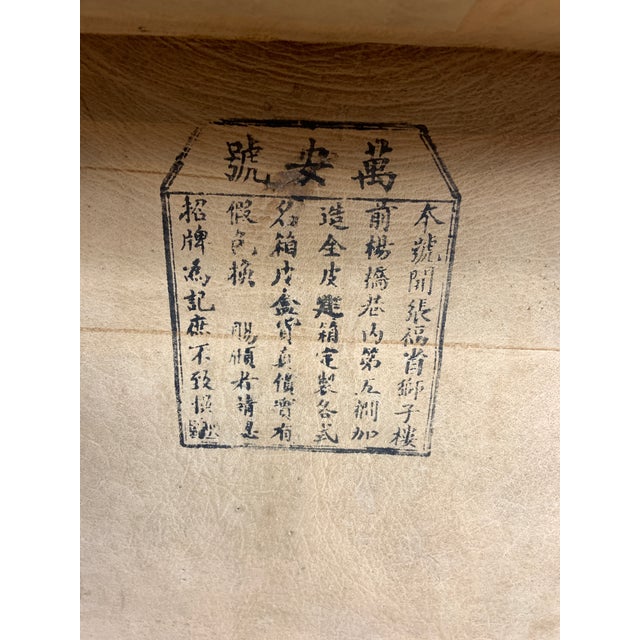 萬安號
本號開張福省獅子樓
前楊橋巷內第五澗加
造全皮箱定製各式
名箱皮盒貨真價實有
假包換 賜顧者請忽
招牌為記庶不致悞